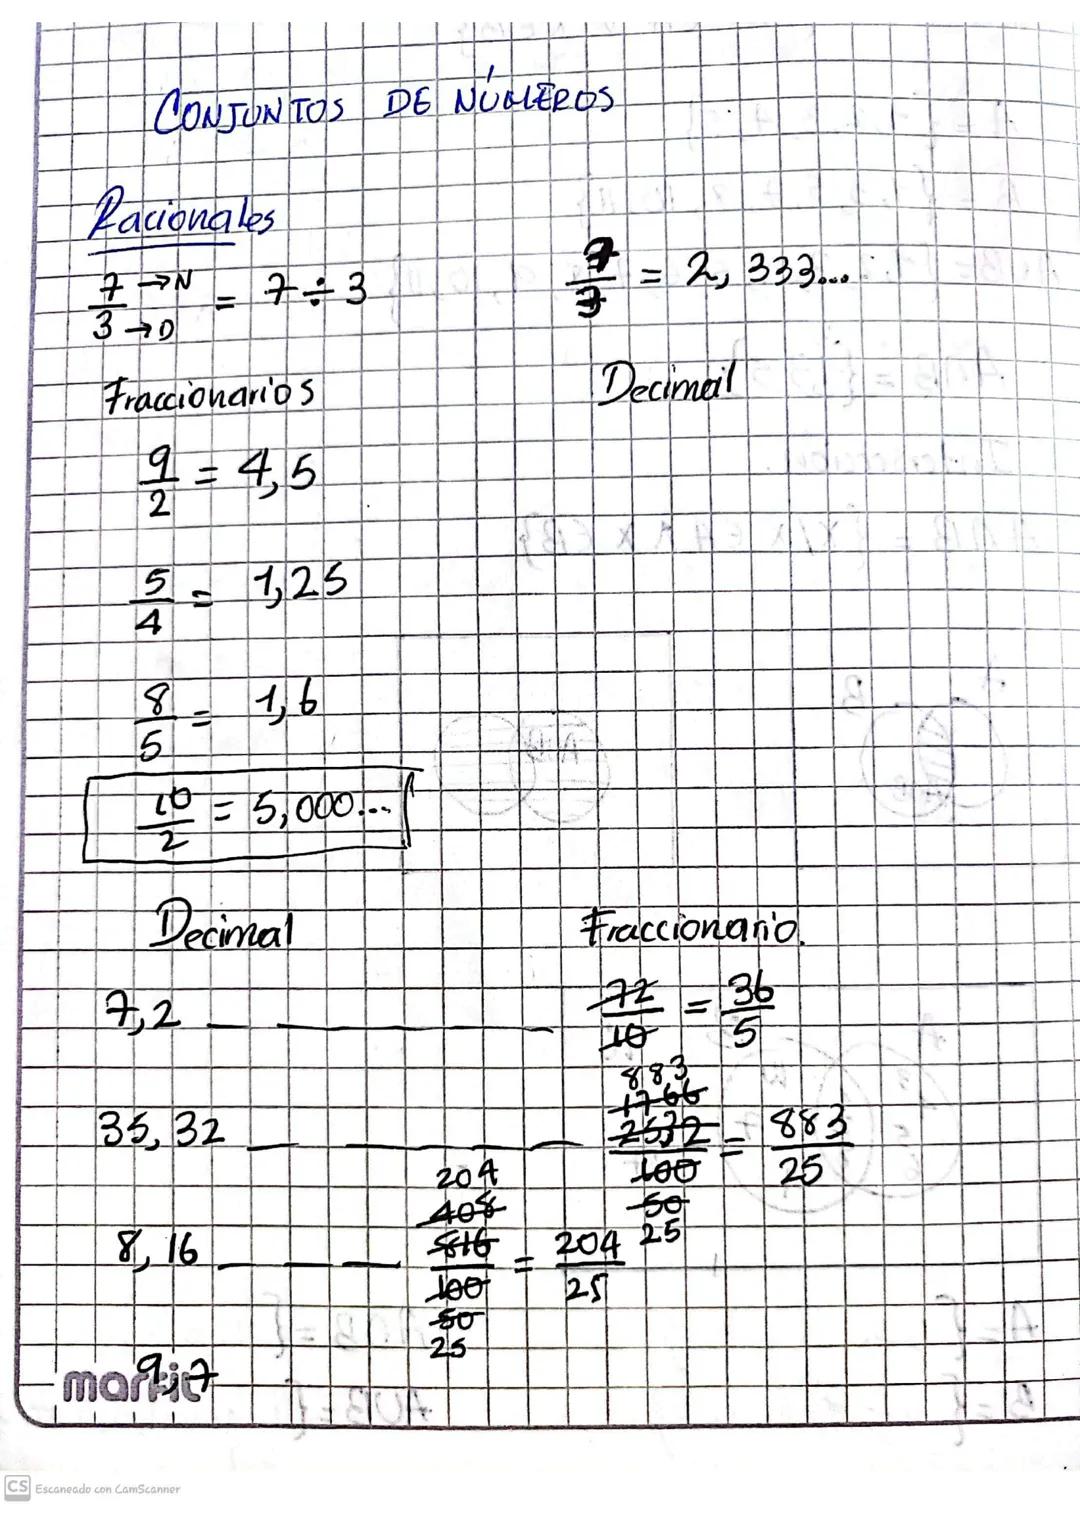 CONJUNTOS DE NÚMEROS
Racionales
7/3 →N →D = 7÷3
7/3 = 2,333...
Fraccionarios
Decimal
9/2 = 4,5
5/4 = 1,25
8/5 = 1,6
10/2 = 5,000...
Decimal
Fraccionario.
7,2 72/10 = 36/5
883
1766
35,32 = 883/25
100
50
25
204
408
8,16 816/100 = 204/25
50
25
9,7
markit
CS Escaneado con CamScanner